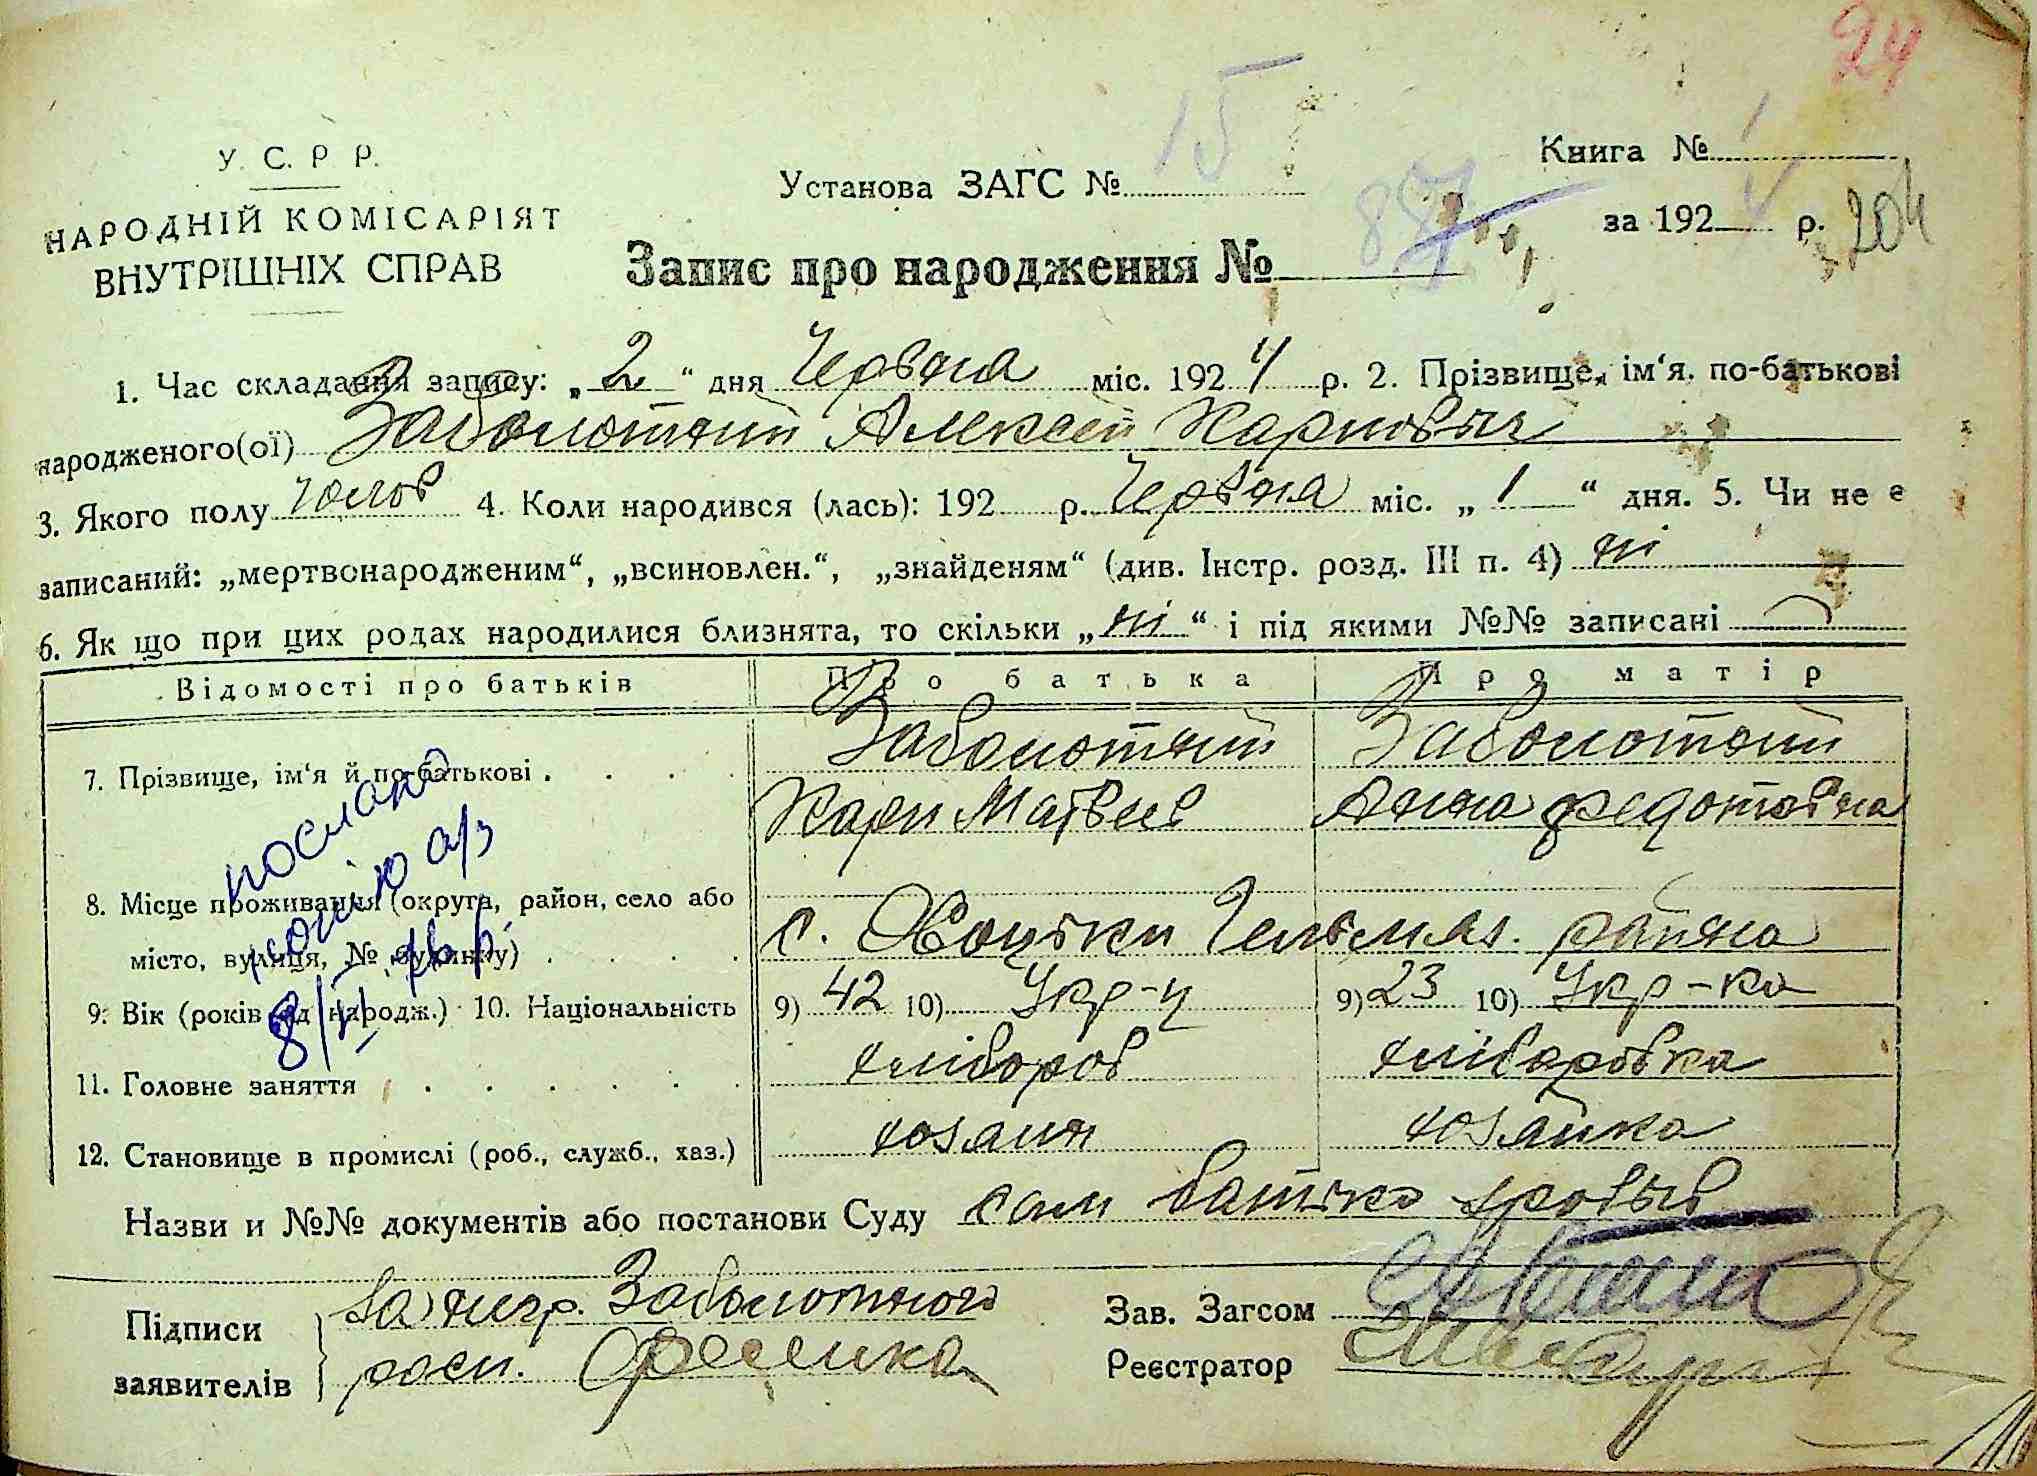 24
У. С. Р. Р.
НАРОДНІЙ КОМІСАРІЯТ
ВНУТРІШНІХ СПРАВ
Установа ЗАГС № 15
Книга № 1
за 192 4 р. 204
Запис про народження № 87
1. Час складання запису: „ 2 “ дня Червня міс. 192 4 р. 2. Прізвище, ім‘я, по-батькові
народженого(ої) Заболотний Алексей Карпович
3. Якого полу чолов 4. Коли народився (лась): 192 р. Червня міс. „ 1 “ дня. 5. Чи не е
записаний: „мертвонародженим“, „всиновлен.“, „знайденям“ (див. Інстр. розд. III п. 4) ні
6. Як що при цих родах народилися близнята, то скільки „ ні “ і під якими №№ записані
Відомості про батьків Про батька Про матір
7. Прізвище, ім‘я й по-батькові . . . . Заболотний Заболотний
Карп Матвеев Анна Федотовна
8. Місце проживання (округа, район, село або
місто, вулиця, № будинку) . . . . с. Хоцьки Гельмяз. району
9. Вік (років від народж.) 10. Національність 9) 42 10) Укр-ц 9) 23 10) Укр-ка
11. Головне заняття . . . . . . хлібороб хліборобка
12. Становище в промислі (роб., служб., хаз.) хозяин хозяйка
послано
копію а/з
Назви и №№ документів або постанови Суду сам батько
Підписи за негр. Заболотного
заявителів расп.
Зав. Загсом
Реєстратор